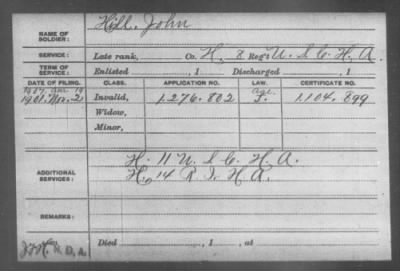 NAME OF SOLDIER: Hill, John
SERVICE: Late rank, Co. H, 8 Reg't U. S. C. H. A.
TERM OF SERVICE: Enlisted , 1 Discharged , 1
DATE OF FILING. CLASS. APPLICATION NO. LAW. CERTIFICATE NO.
1907, 19
1901, Nov. 2 Invalid, 1.276.802 Age J. 1.104.899
Widow,
Minor,
ADDITIONAL SERVICES: H. 11 U. S. C. H. A.
H, 14 R. I. H. A.
REMARKS:
Died , 1 , at